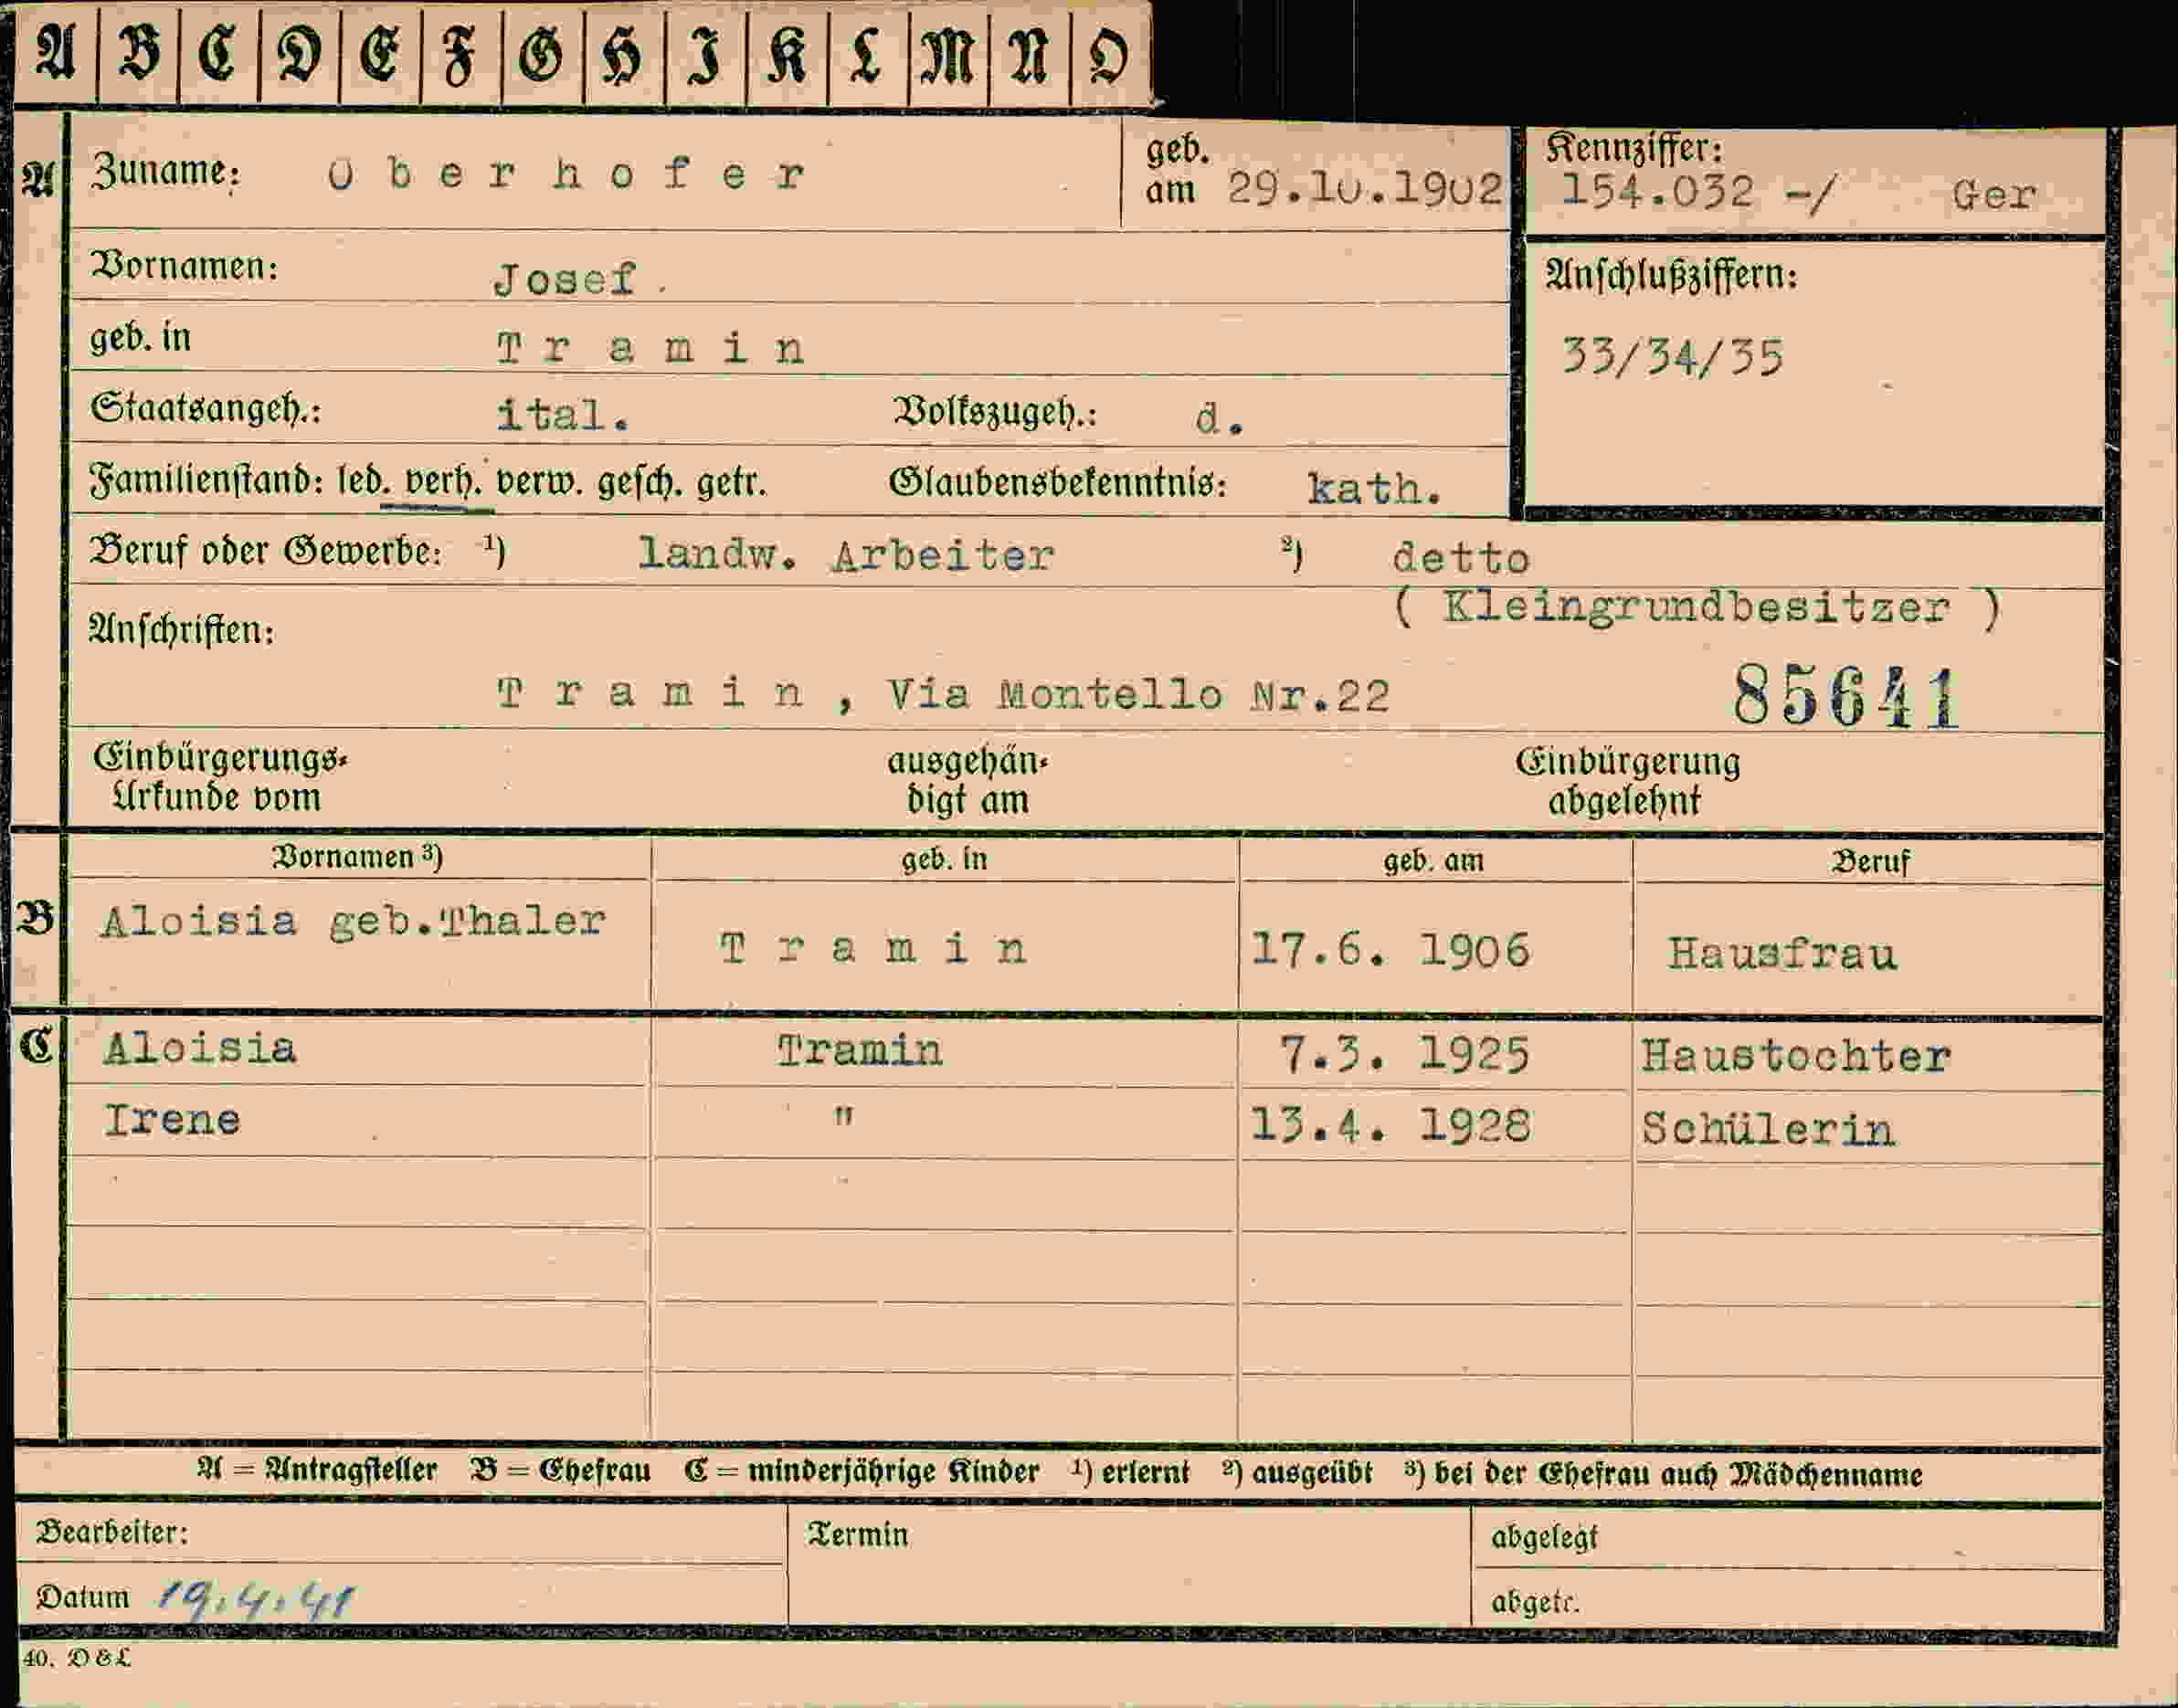 A B C D E F G H I K L M N O
A Zuname: Oberhofer geb. am 29.10.1902 Kennziffer: 154.032 -/ Ger
Vornamen: Josef. Anschlußziffern:
geb. in Tramin 33/34/35
Staatsangeh.: ital. Volkszugeh.: d.
Familienstand: led. verh. verw. gesch. getr. Glaubensbekenntnis: kath.
Beruf oder Gewerbe: ¹) landw. Arbeiter ²) detto
( Kleingrundbesitzer )
Anschriften:
Tramin, Via Montello Nr.22 85641
Einbürgerungs- ausgehän- Einbürgerung
Urkunde vom digt am abgelehnt
Vornamen ³) geb. in geb. am Beruf
B Aloisia geb.Thaler Tramin 17.6. 1906 Hausfrau
C Aloisia Tramin 7.3. 1925 Haustochter
Irene " 13.4. 1928 Schülerin
A = Antragsteller B = Ehefrau C = minderjährige Kinder ¹) erlernt ²) ausgeübt ³) bei der Ehefrau auch Mädchenname
Bearbeiter: Termin abgelegt
Datum 19.4.41 abgetr.
40. D & L